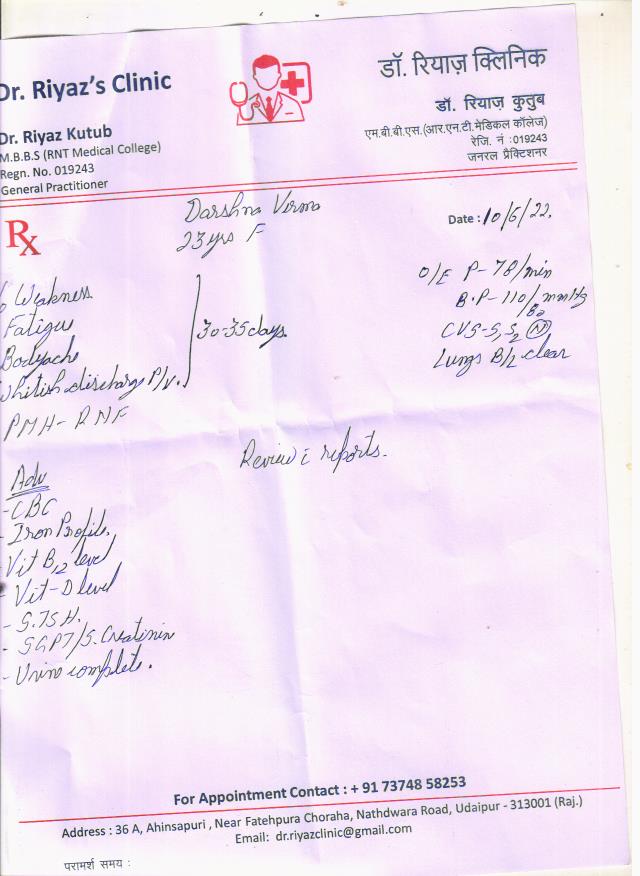 Dr. Riyaz's Clinic
Dr. Riyaz Kutub
M.B.B.S (RNT Medical College)
Regn. No. 019243
General Practitioner
डॉ. रियाज़ क्लिनिक
डॉ. रियाज़ कुतुब
एम.बी.बी.एस.(आर.एन.टी.मेडिकल कॉलेज)
रेजि. नं :019243
जनरल प्रैक्टिशनर
Rx
Darshna Verma
23yrs F
Date : 10/6/22.
Weakness
Fatigue
Bodyache
Whitish discharge P/v.
30-35 days.
PMH - RNF
O/E P-78/min
B.P-110/80 mmHg
CVS-S1S2 (N)
Lungs B/L clear
Review c reports.
Adv
- CBC
- Iron Profile,
Vit B12 level
- Vit-D level
- S.TSH.
- SGPT/S.Creatinin
- Urine complete.
For Appointment Contact : + 91 73748 58253
Address : 36 A, Ahinsapuri , Near Fatehpura Choraha, Nathdwara Road, Udaipur - 313001 (Raj.)
Email: dr.riyazclinic@gmail.com
परामर्श समय :